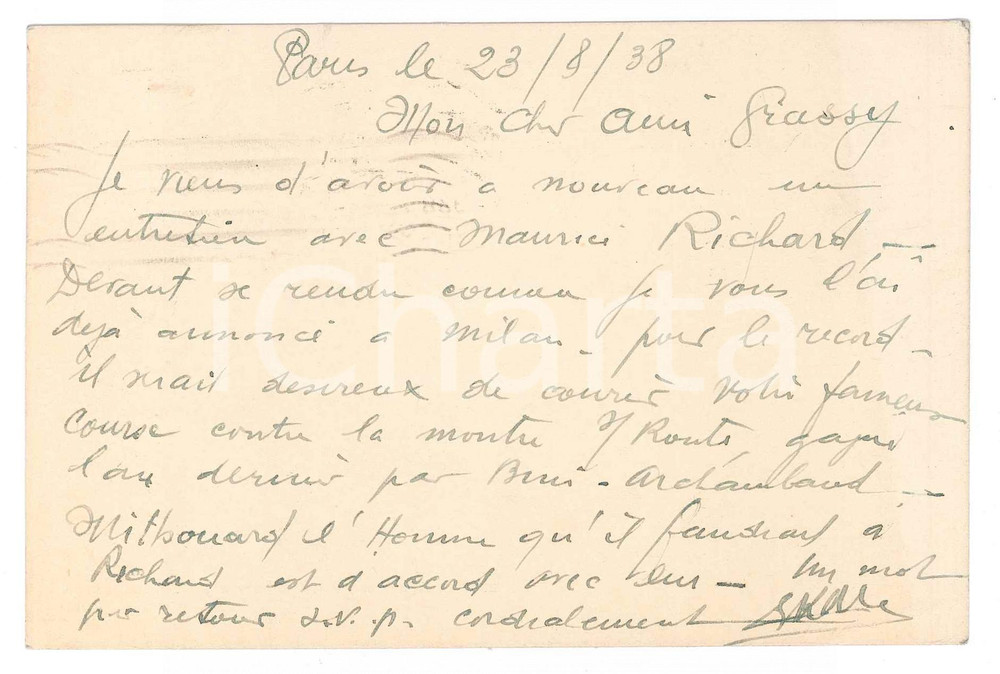 Paris le 23/8/38
Mon cher Ami Grassy
Je viens d'avoir a nouveau un
entretien avec Maurice Richard --
Devant se rendre comme je vous l'ai
dejà annoncé a Milan - pour le record -
il serait desireux de courir votre fameuse
course contre la montre s/Route, gagné
l'an dernier par Bini - Archambaud -
Mithouard l'Homme qu'il faudrait à
Richard est d'accord avec lui - Un mot
par retour s.v.p. cordialement
iCharta